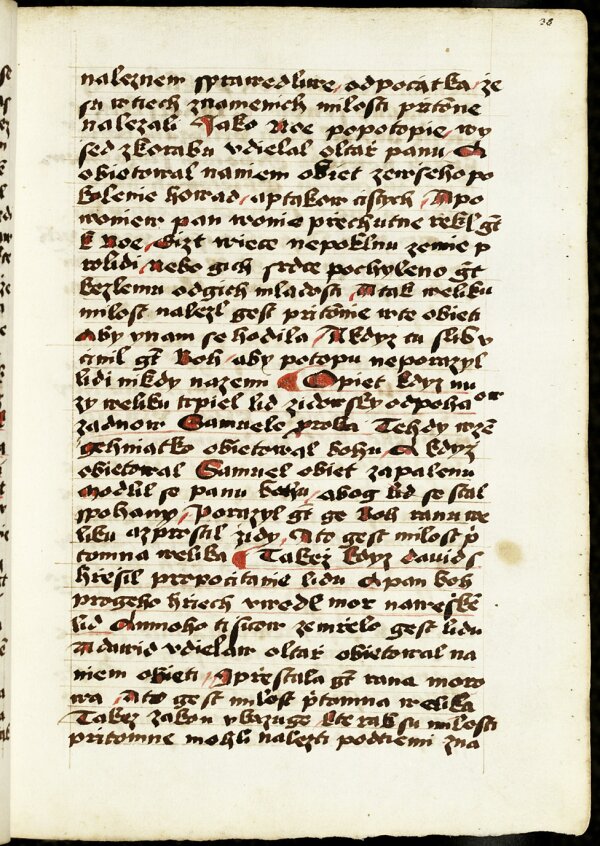 38
naleznem sprawedliwe odpocatka ze
su wtiech znamenich milosti pritone
nalezali Jako Noe popotopie wy
sed zkorabu vdielal oltar panu A
obietowal naniem obiet zewseho po
kolenie howad aptakow cistych Apo
woniew pan wonie prechutne rekl gt
k Noe Gizt wiece nepoklnu zemie p
rolidi nebo gich srdce pochyleno gt
kezlemu odgich mladosti Atak weliku
milost nalezl gest pritomne wte obieti
Aby ynam se hodila Akdyz tu slib v
cinil gt Boh aby potopu neporazyl
lidi nikdy nazemi Opiet kdyz nu
zy weliku trpiel lid zidowsky odpoha ow
zadnow Samuele proka Tehdy wze
gehniatko obietowal bohu A kdyz
obietowal Samuel obiet zapalenu
modlil se panu bohu abog lid se stal
spohany Porazyl gt ge Boh ranu we
liku azprostil zidy Ato gest milost p
tomna welika Takez kdyz dauid s
hresil propocitanie lidu A pan boh
progeho hriech vwedl mor naweske
lid Amnoho tisicow zemrelo gest lidu
Adawid vdielaw oltar obietowal na
niem obieti Aprestala gt rana moro
wa Ato gest milost ptomna welika
Takez zakon vkazuge kterak su milosti
pritomne mohli nalezti podtiemi zna